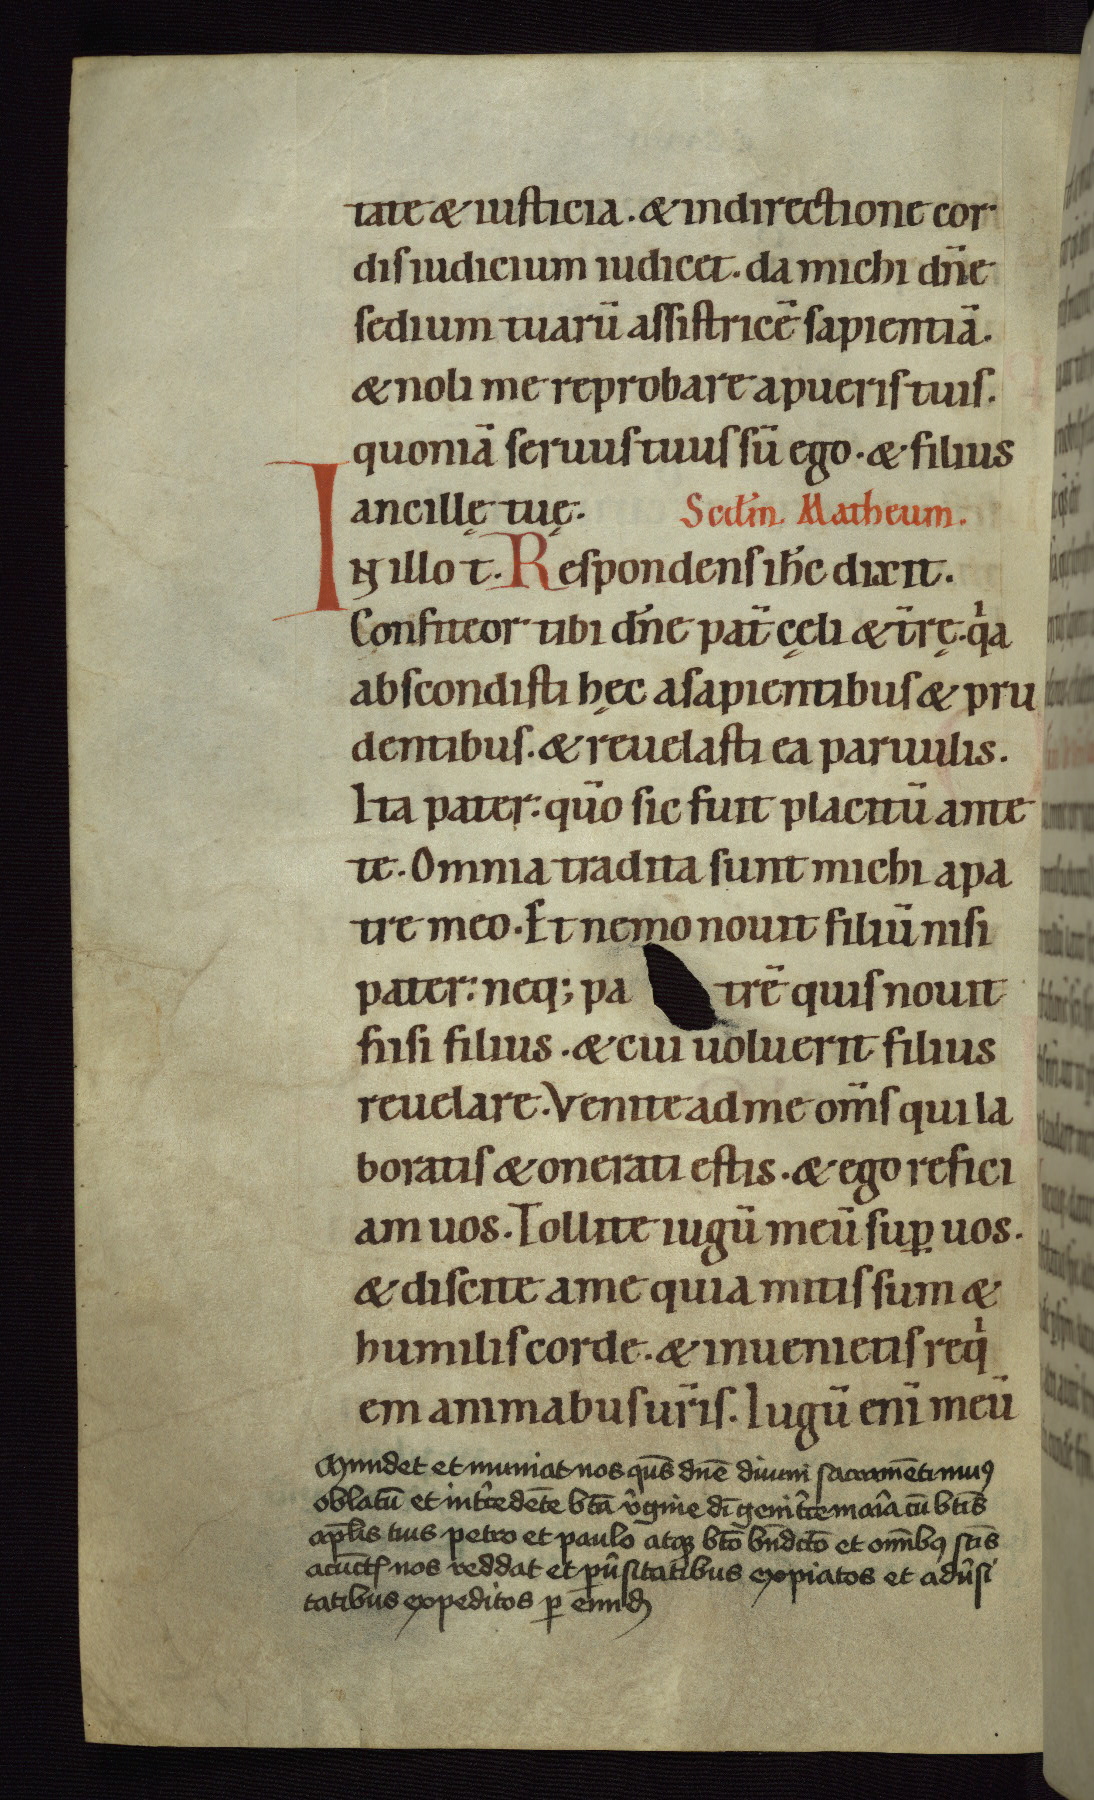 tate & iusticia. & indirectione cor
dis iudicium iudicet. da michi dn̄e
sedium tuarū assistricē sapientiā.
& noli me reprobare apueris tuis.
quoniā seruus tuus sū ego. & filius
ancillę tuę. Scdm̄. Matheum.
IN illo t. Respondens ih̄c dixit.
Confiteor tibi dn̄e pat̄ cęli & t̄rę. qͥa
abscondisti hęc asapientibus & pru
dentibus. & reuelasti ea paruulis.
Ita pater: qūo sic fuit placitū ante
te. Omnia tradita sunt michi apa
tre meo. Et nemo nouit filiū nisi
pater: neq; pa trē quis nouit
nisi filius. & cui uoluerit filius
reuelare. Venite ad me om̄s qui la
boratis & onerati estis. & ego refici
am uos. Tollite iugū meū suꝑ uos.
& discite ame quia mitis sum &
humilis corde. & inuenietis reqͥ
em animabus ur̄is. Iugū eni̅ meū
Mundet et muniat nos qs̄ dnē diuini sacramēti munꝯ
oblatū et int̄cedēte btā v̄gine dī genit̄ce maīa cū btīs
apl̄is tuis petro et paulo atqꝫ btō bn̄dctō et om̄ibꝯ sctīs
a cūctꝭ nos reddat et pūsitatibus expiatos et adūsi
tatibus expeditos ꝑ eund̄